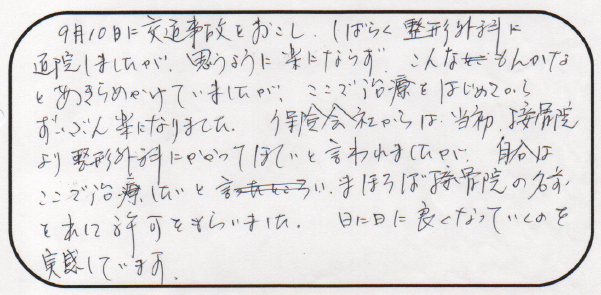 9月10日に交通事故をおこし、しばらく整形外科に
通院しましたが、思うように楽にならず、こんなもんかな
とあきらめかけていましたが、ここで治療をはじめてから
ずいぶん楽になりました。保険会社からは、当初、接骨院
より整形外科にかかってほしいと言われましたが、自分は
ここで治療したいと言い、まほろば接骨院の名前
を出し許可をもらいました。日に日に良くなっていくのを
実感しています。